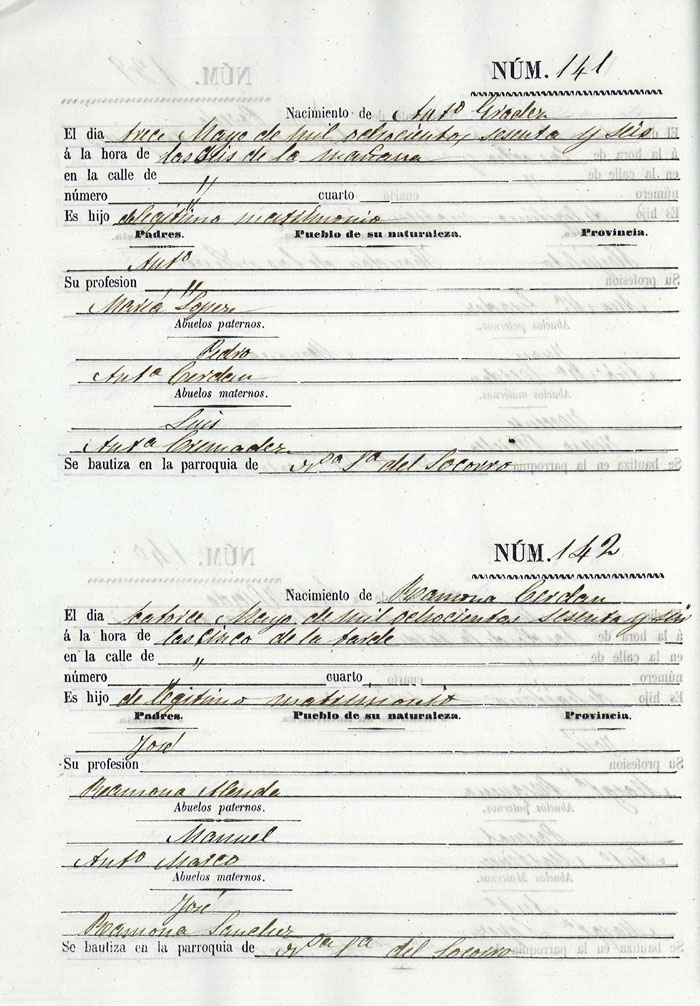 NÚM. 141
Nacimiento de Antº
El dia trece Mayo de mil ochocientos sesenta y seis
á la hora de las Seis de la mañana
en la calle de "
número " cuarto
Es hijo de legitimo matrimonio
Padres. Pueblo de su naturaleza. Provincia.
Antº
Su profesion "
María Lopez
Abuelos paternos.
Pedro
Antª Cerdan
Abuelos maternos.
Luis
Antª Cremades
Se bautiza en la parroquia de Nª Sª del Socorro
NÚM. 142
Nacimiento de Ramona Cerdan
El dia catorce Mayo de mil ochocientos sesenta y seis
á la hora de las Cinco de la tarde
en la calle de "
número " cuarto
Es hijo de legitimo matrimonio
Padres. Pueblo de su naturaleza. Provincia.
José
Su profesión
Ramona
Abuelos paternos.
Manuel
Antª Marco
Abuelos maternos.
José
Ramona Sanchez
Se bautiza en la parroquia de Nª Sª del Socorro